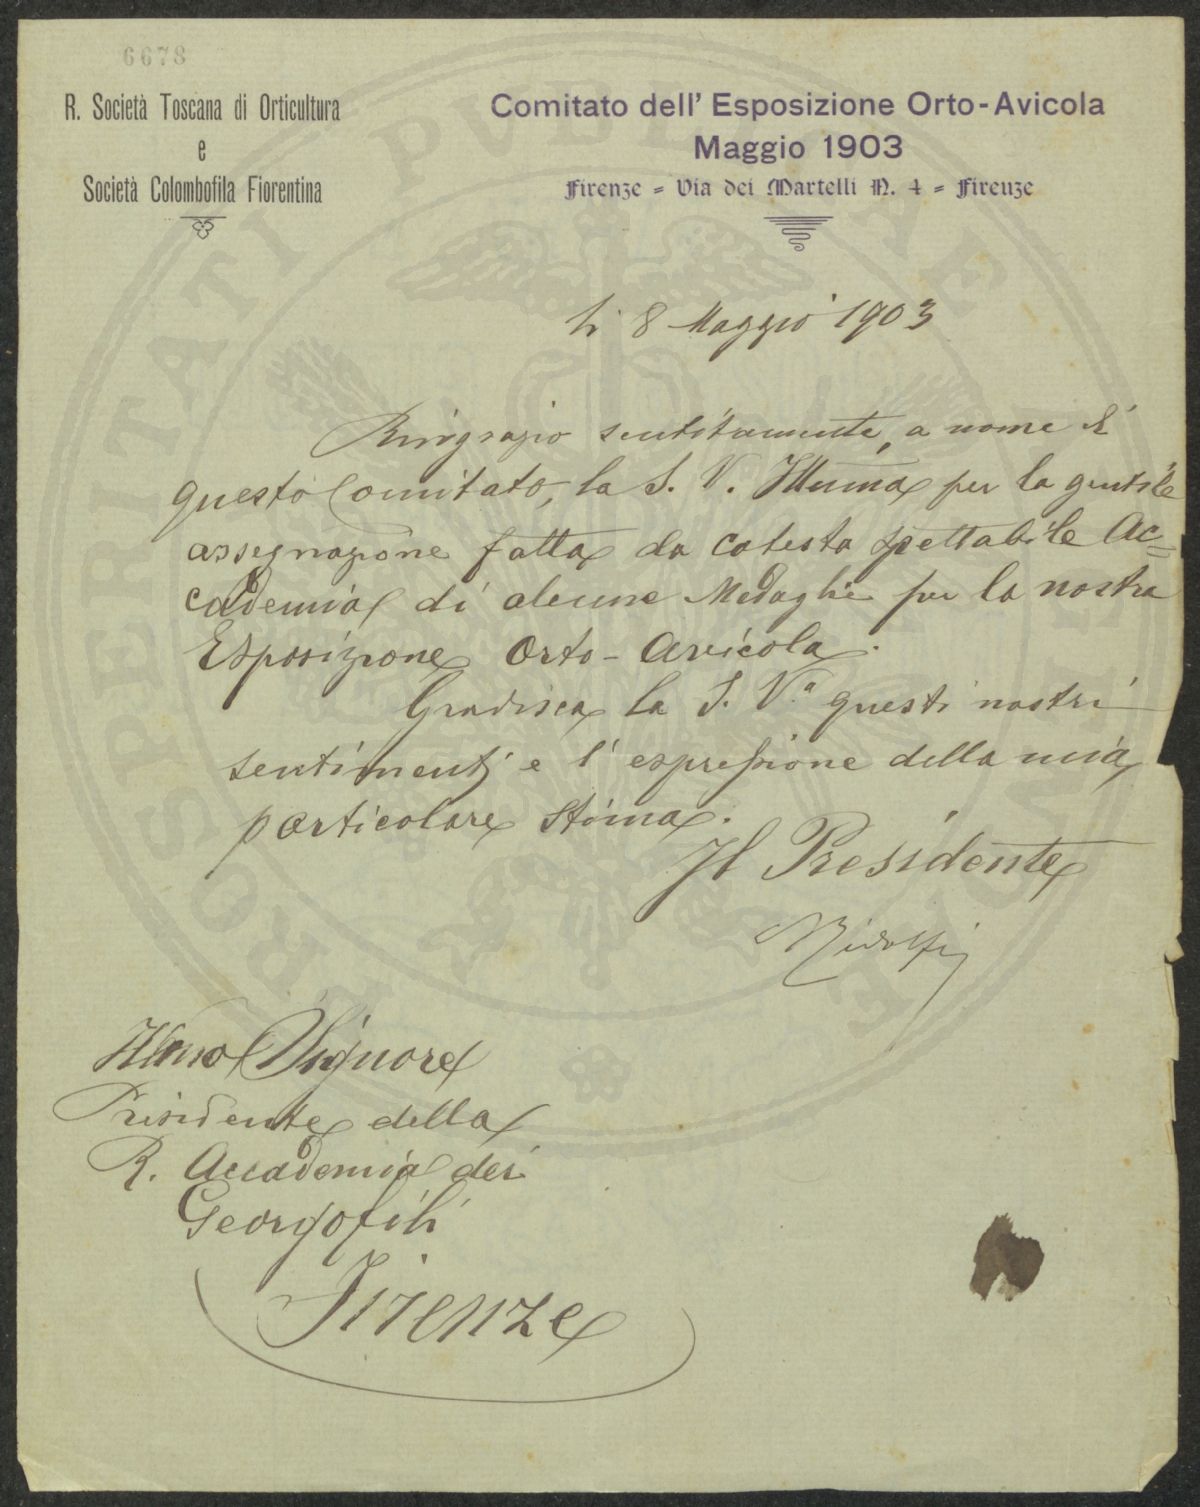 6678
R. Società Toscana di Orticultura
e
Società Colombofila Fiorentina
Comitato dell' Esposizione Orto-Avicola
Maggio 1903
Firenze = Via dei Martelli N. 4 = Firenze
PROSPERITATI PUBLICAE
li 8 Maggio 1903
Ringrazio sentitamente, a nome di
questo Comitato, la S. V. Illuma per la gentile
assegnazione fatta da cotesta spettabile Ac=
cademia di alcune Medaglie per la nostra
Esposizione Orto-Avicola.
Gradisca la S. V.a questi nostri
sentimenti e l'espressione della mia
particolare stima.
Il Presidente
Ridolfi
Illmo Signore
Presidente della
R. Accademia dei
Georgofili
Firenze